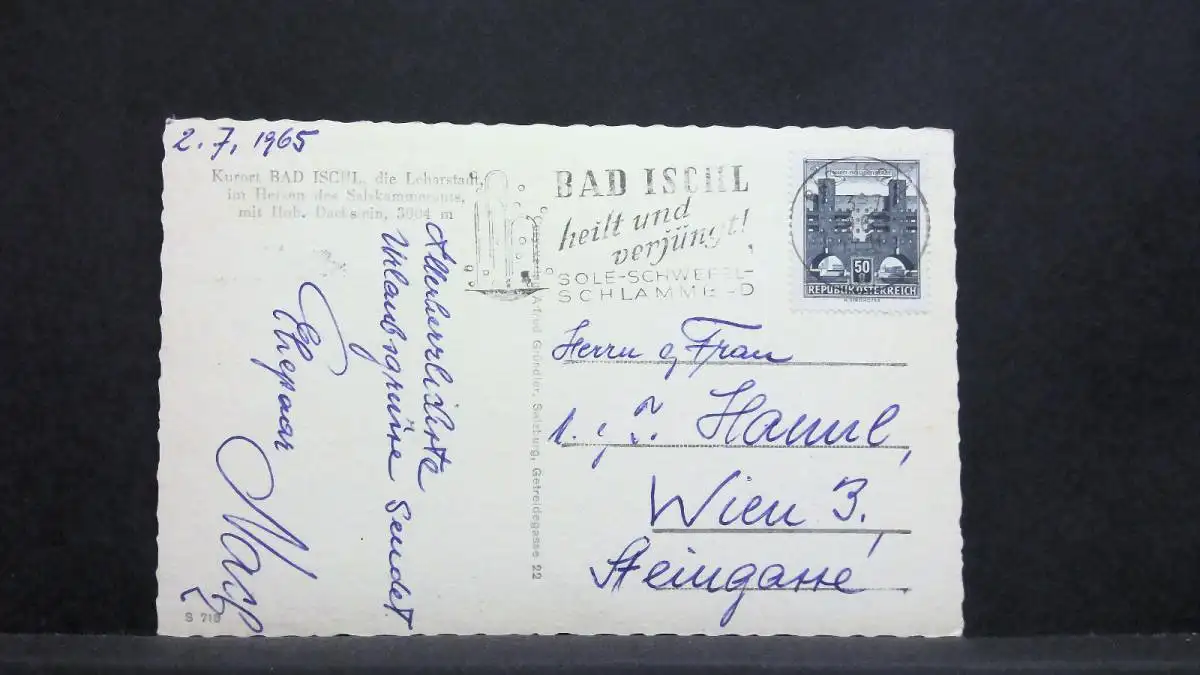 2. 7. 1965
Kurort BAD ISCHL, die Leharstadt,
im Herzen des Salzkammerguts,
mit Hoh. Dachstein, 3004 m
BAD ISCHL
heilt und
verjüngt!
SOLE-SCHWEFEL-
SCHLAMM
50
REPUBLIK ÖSTERREICH
Allerherzlichste
Urlaubsgrüsse sendet
Ehepaar
Alfred Gründler, Salzburg, Getreidegasse 22
Herrn u. Frau
Wien 3.
Steingasse
S 718